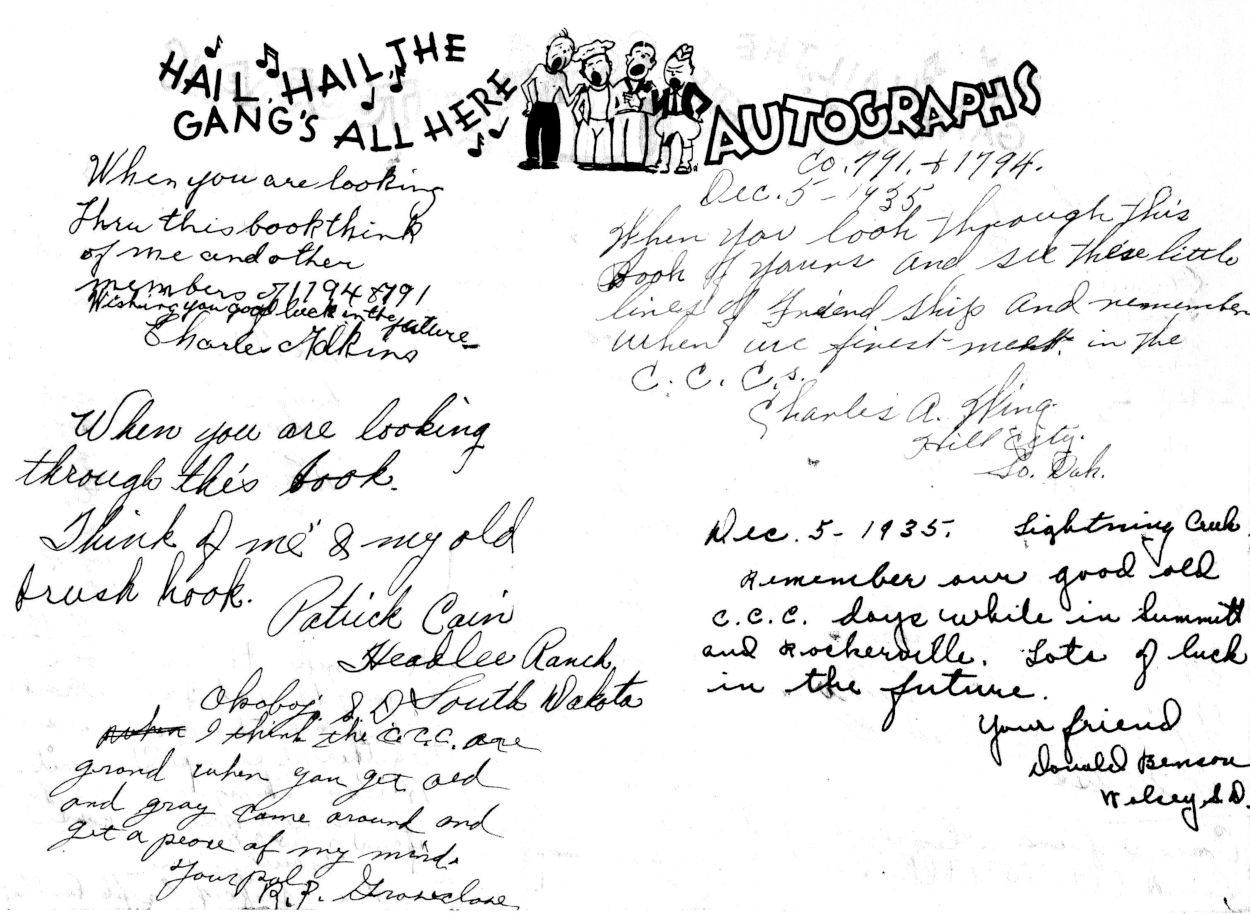 HAIL, HAIL THE
GANG'S ALL HERE
AUTOGRAPHS
When you are looking
Thru this book think
of me and other
members of 1794 & 791
Wishing you good luck in the future
Charles Adkins
When you are looking
through this book.
Think of me & my old
brush hook.
Patrick Cain
Headlee Ranch
Okoboji S D South Dakota
I think the C.C.C. are
grand when you get old
and gray come around and
get a peace of my mind.
Your pal
R.P. Groseclose
Co. 791. & 1794.
Dec. 5 - 1935
When you look through this
book of yours and see these little
lines of Friend Ship and remember
when we first meet. in the
C. C. C.s.
Charles A. Wing
Hill City.
So. Dak.
Dec. 5 - 1935. Lightning Creek.
Remember our good old
C.C.C. days while in Summitt
and Rockerville. Lots of luck
in the future.
Your friend
Donald Benson
Wolsey S.D.